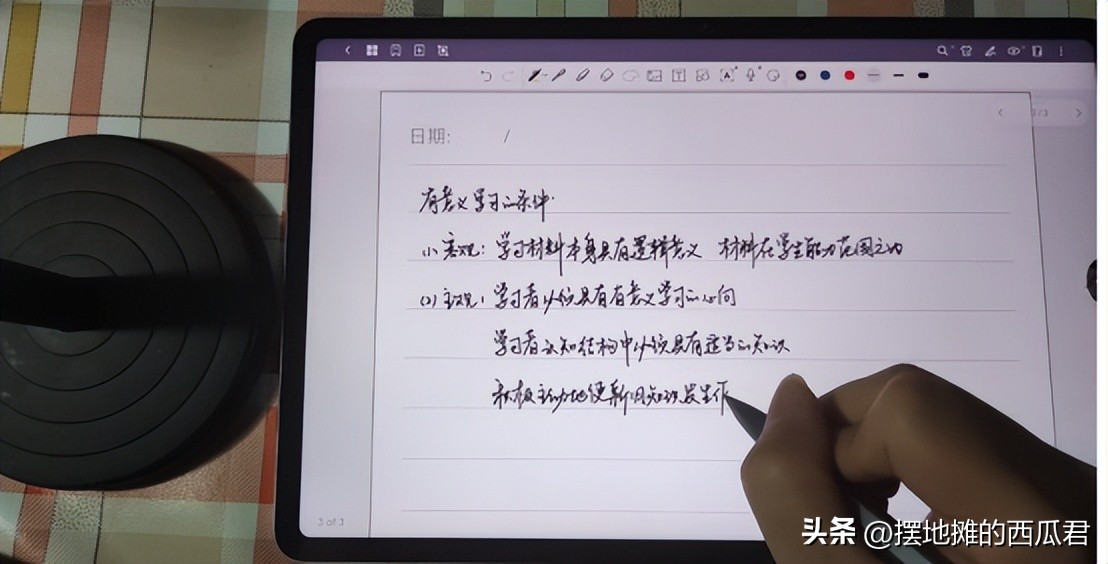 日期: /
有意义学习的条件.
(1) 客观: 学习材料本身具有逻辑意义 材料在学生能力范围之内
(2) 主观: 学习者必须具有有意义学习的心向
学习者认知结构中必须具有适当的知识
积极主动地使新旧知识发生作
3 of 3
头条 @摆地摊的西瓜君